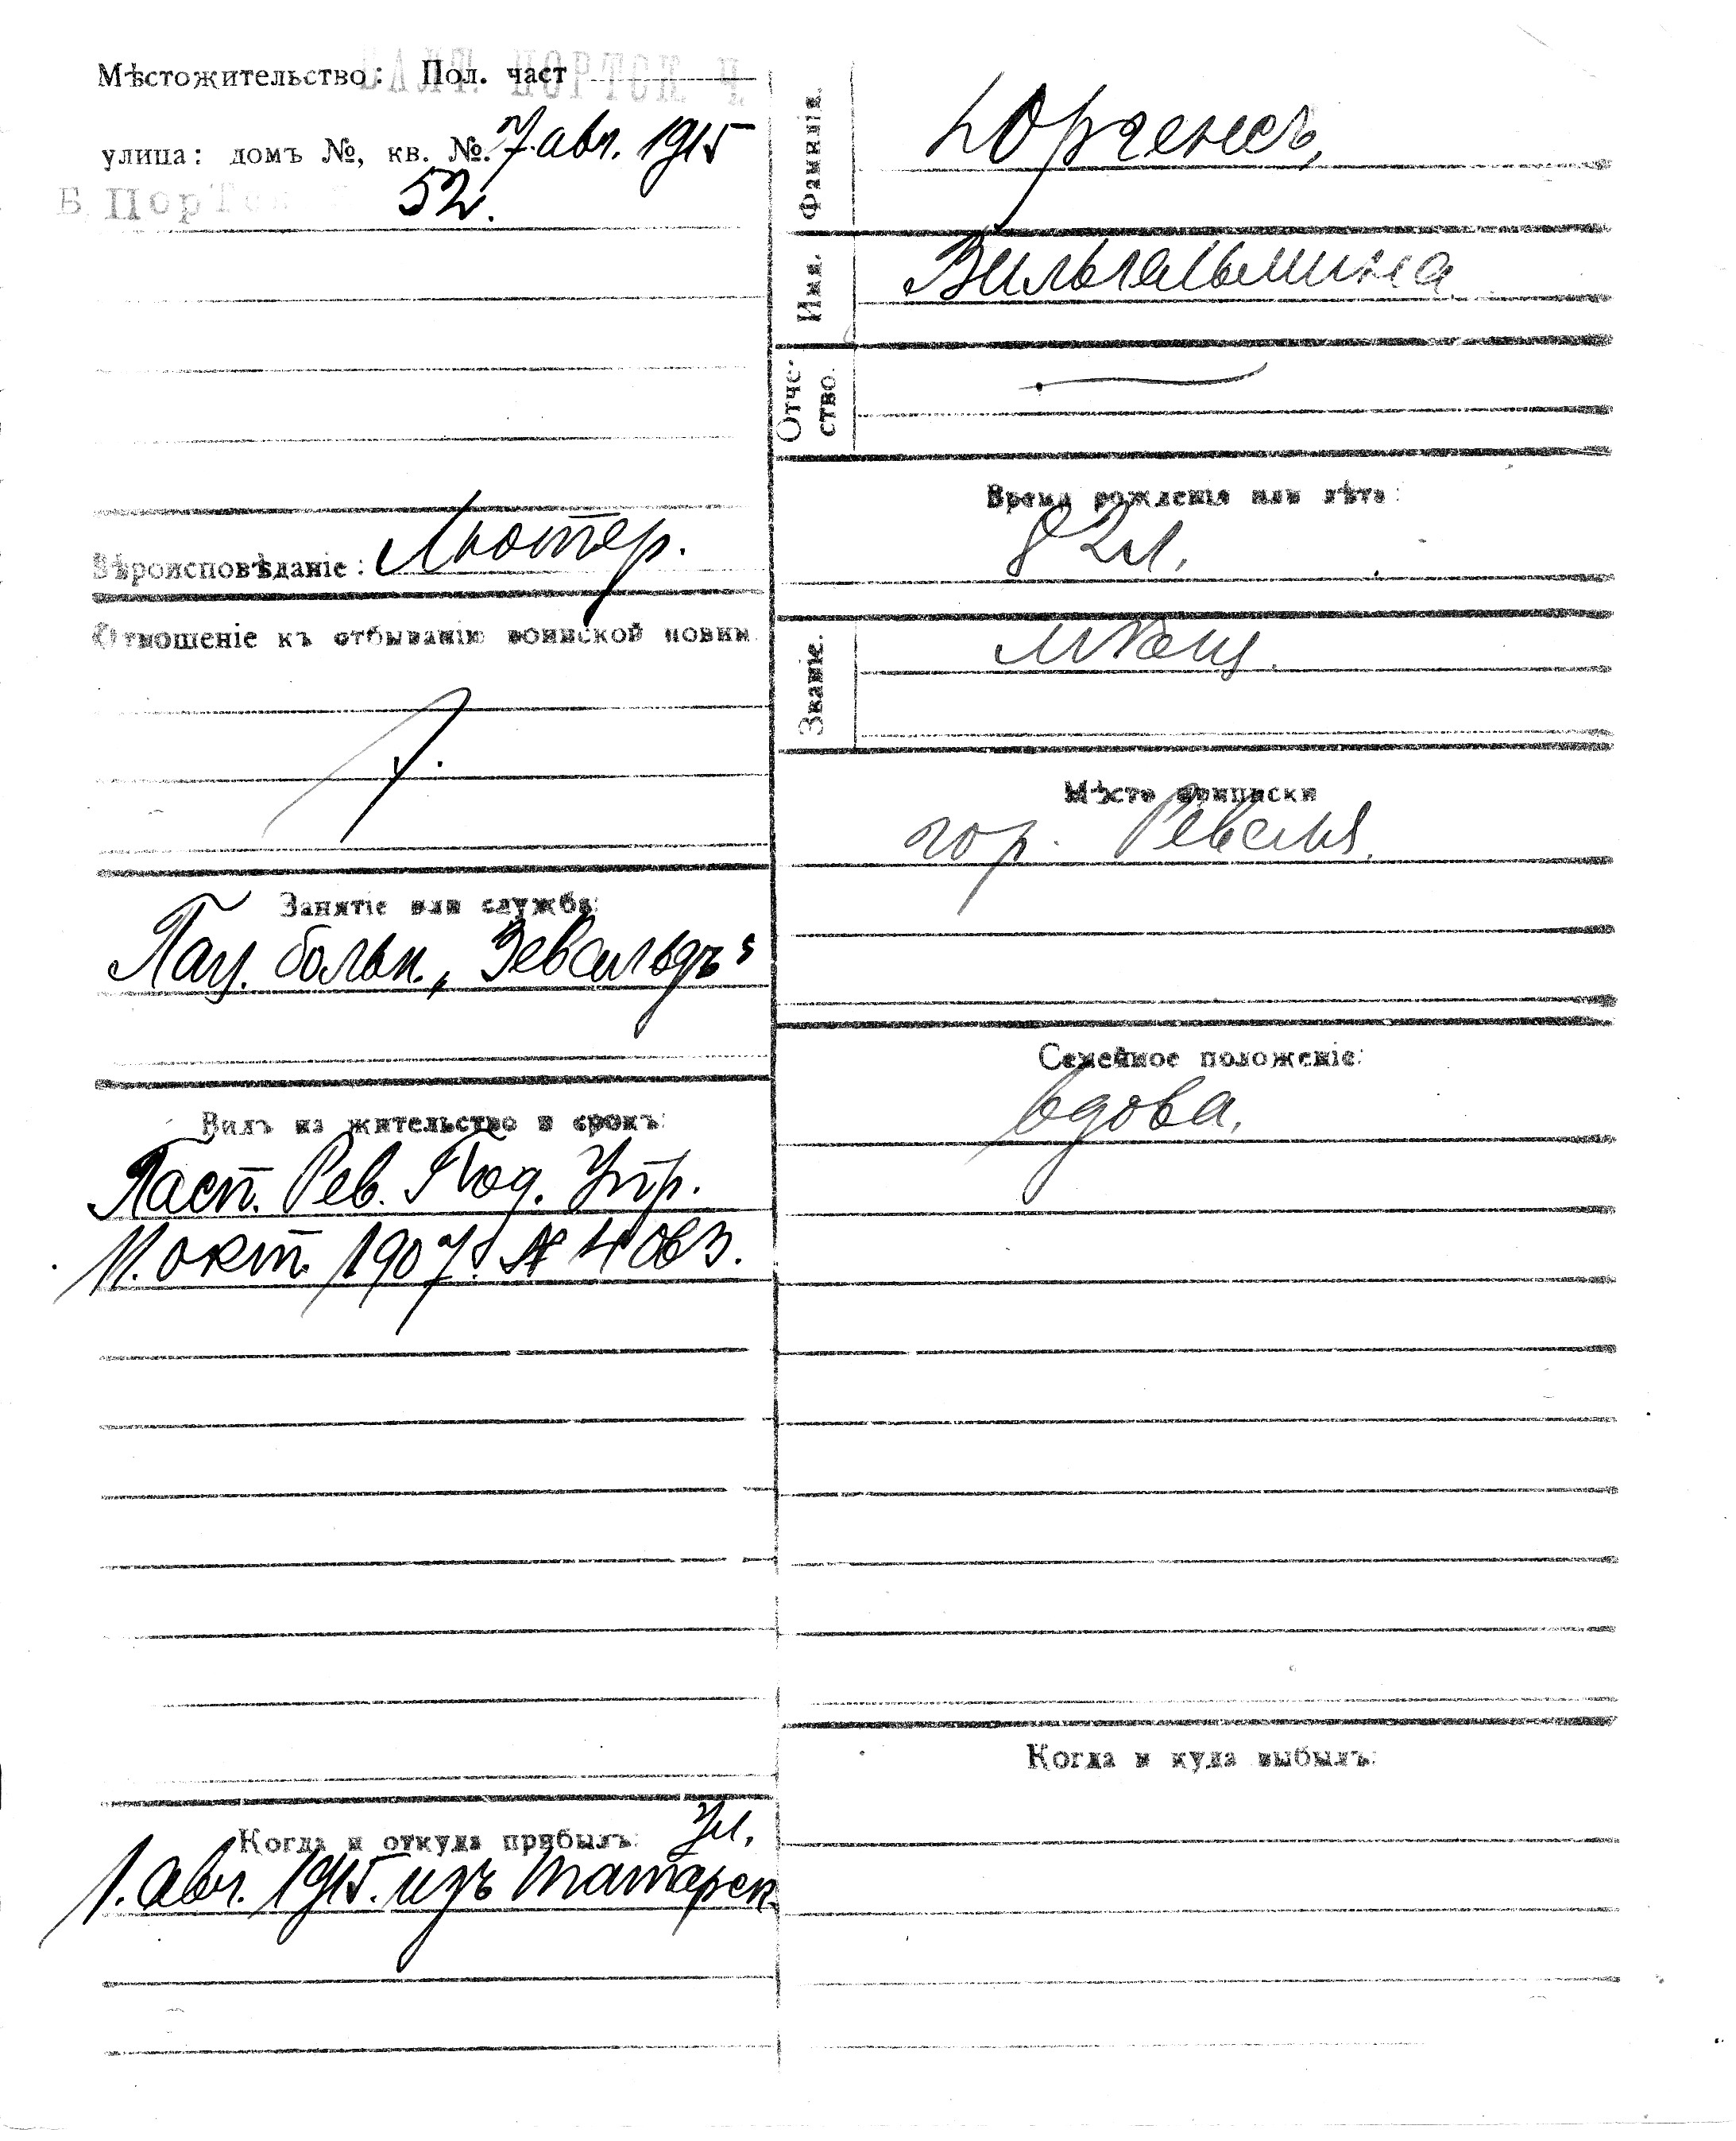 Мѣстожительство: Пол. част
БАЛТ. ПОРТСК Ч.
улица: домъ №, кв. №. 7. авг. 1915
Б. Порт 52.
Вѣроисповѣданіе: Лютер.
Отношеніе къ отбыванію воинской повин.
Занятіе или служба:
Пац. больн. „Зевальдъ"
Видъ на жительство и срокъ:
Пасп. Рев. Под. Упр.
11. окт. 1907 г. № 4063.
Когда и откуда прибылъ: Ул.
1. авг. 1915 г. изъ Татарск.
Фамилія. Юргенсъ,
Имя. Вильгельмина
Отче-
ство.
Время рожденія или лѣта:
82 л.
Званіе. мѣщ.
Мѣсто приписки
гор. Ревеля.
Семейное положеніе:
вдова.
Когда и куда выбылъ: